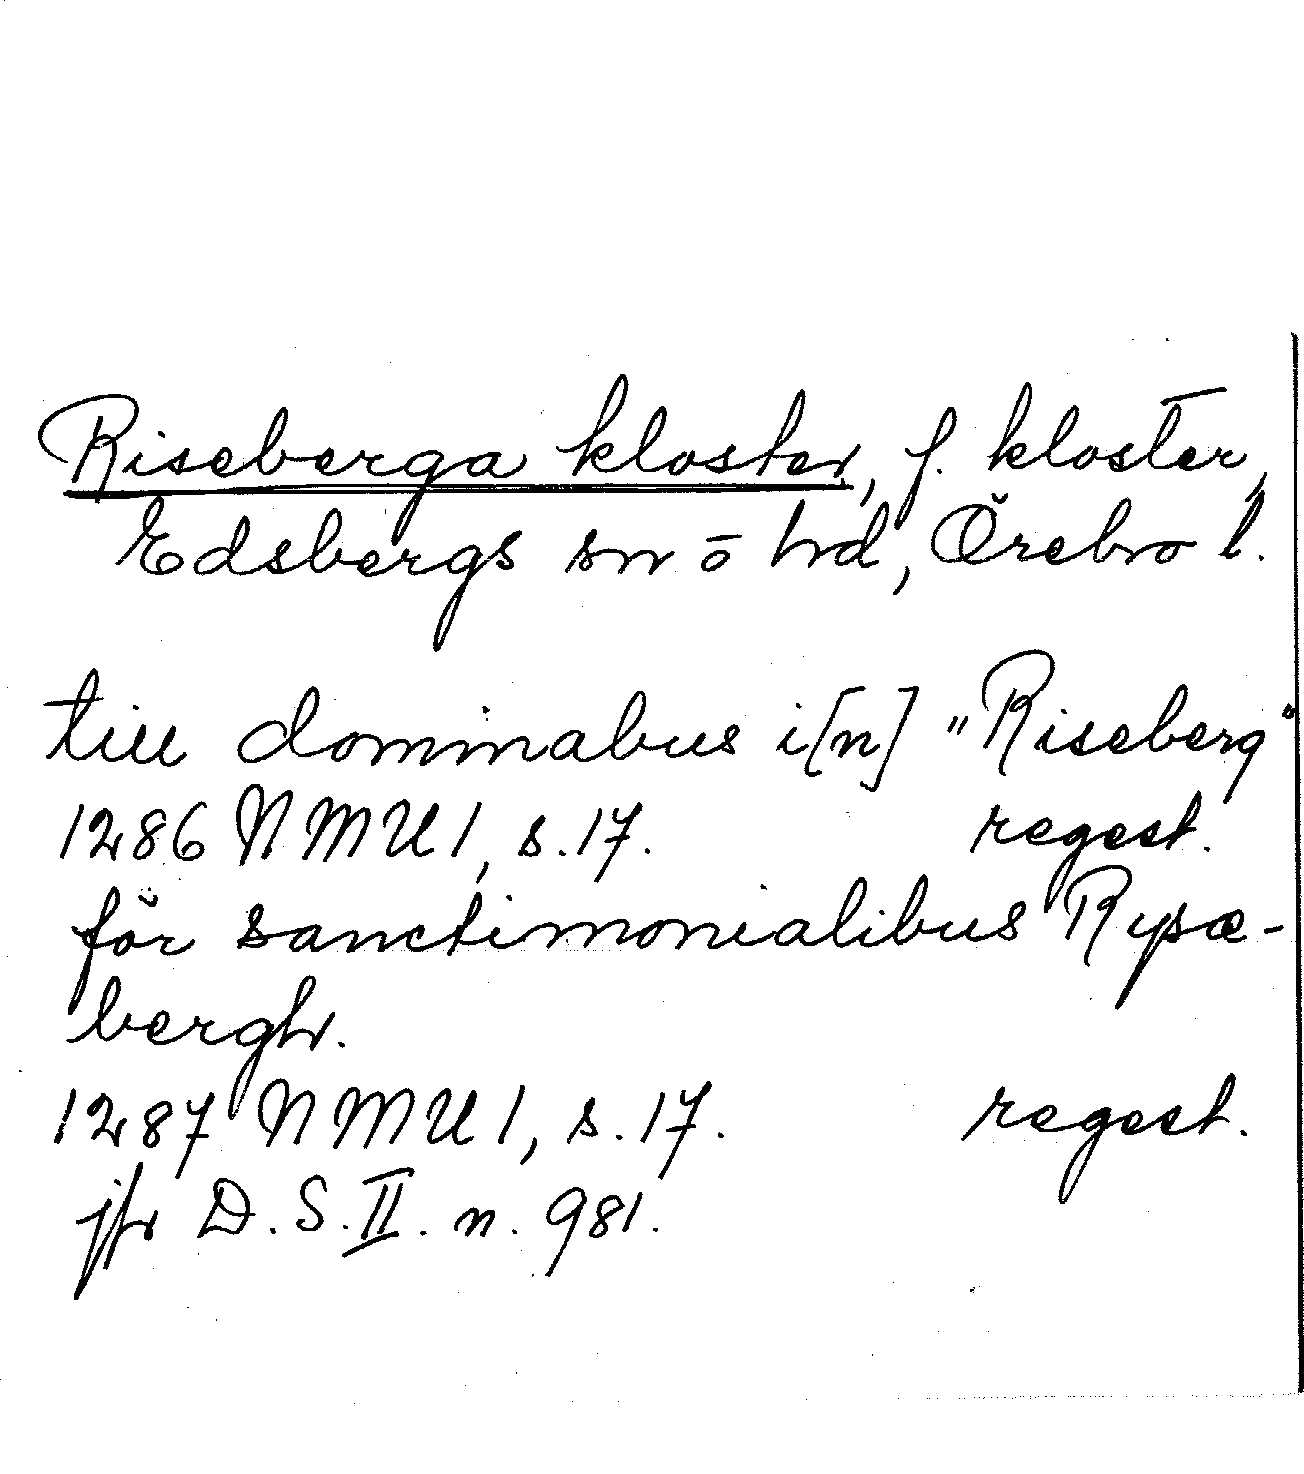 Riseberga kloster, f. kloster,
Edsbergs sn ō hd, Örebro l.
till dominabus i[n] "Riseberg"
1286 NMU 1, s. 17. regest.
för sanctimonialibus Rysæ-
bergh.
1287 NMU 1, s. 17. regest.
jfr D.S. II. n. 981.